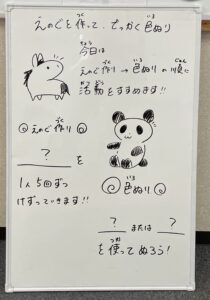 えのぐを作って、でっかく色ぬり
今日は
えのぐ作り→色ぬりの順に
活動をすすめます!!
えのぐ作り
? を
1人5回ずつ
けずっていきます!!
色ぬり
? または ?
を使ってぬろう!